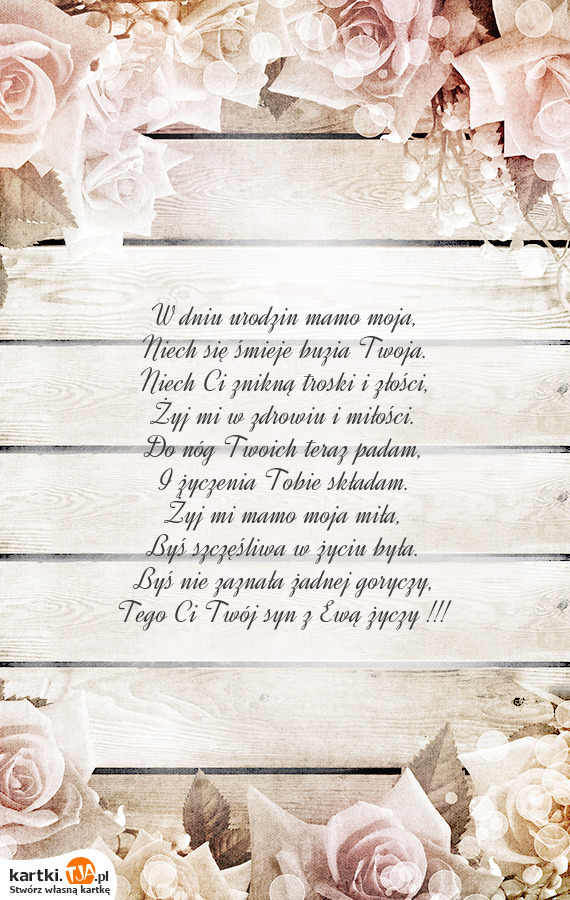 W dniu urodzin mamo moja,
Niech się śmieje buzia Twoja.
Niech Ci znikną troski i złości,
Żyj mi w zdrowiu i miłości.
Do nóg Twoich teraz padam,
I życzenia Tobie składam.
Żyj mi mamo moja miła,
Byś szczęśliwa w życiu była.
Byś nie zaznała żadnej goryczy,
Tego Ci Twój syn z Ewą życzy !!!
kartki.TJA.pl
Stwórz własną kartkę